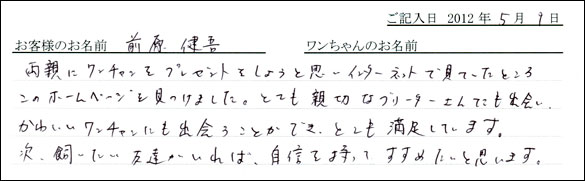 ご記入日 2012年5月9日
お客様のお名前 前原 健吾 ワンちゃんのお名前
両親にワンチャンをプレゼントをしようと思いインターネットで見ていたところ
このホームページを見つけました。とても親切なブリーターさんにも出会い、
かわいいワンチャンにも出会うことができ、とても満足しています。
次、飼いたい友達がいれば、自信を持ってすすめたいと思います。